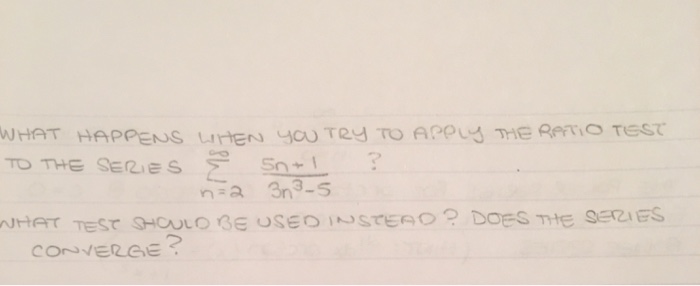 WHAT HAPPENS WHEN YOU TRY TO APPLY THE RATIO TEST
TO THE SERIES ∞ Σ n=2 5n+1 / 3n³-5 ?
WHAT TEST SHOULD BE USED INSTEAD? DOES THE SERIES
CONVERGE?